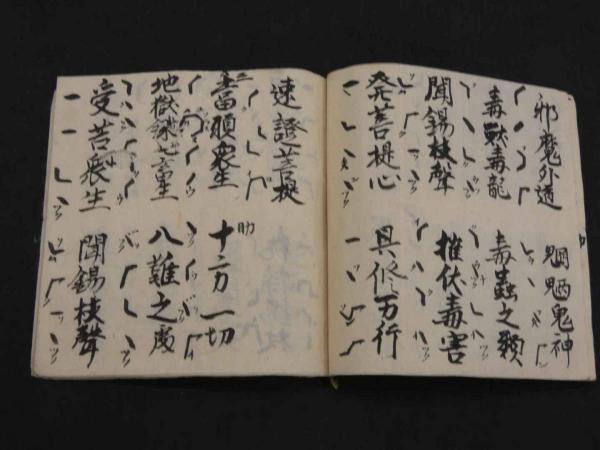 邪魔外道 魍魎鬼神
毒獸毒龍 毒蟲之類
聞錫杖聲 摧伏毒害
発菩提心 具修万行
速證菩提
當願衆生 助 十方一切
地獄餓鬼畜生 八難之處
受苦衆生 聞錫杖聲